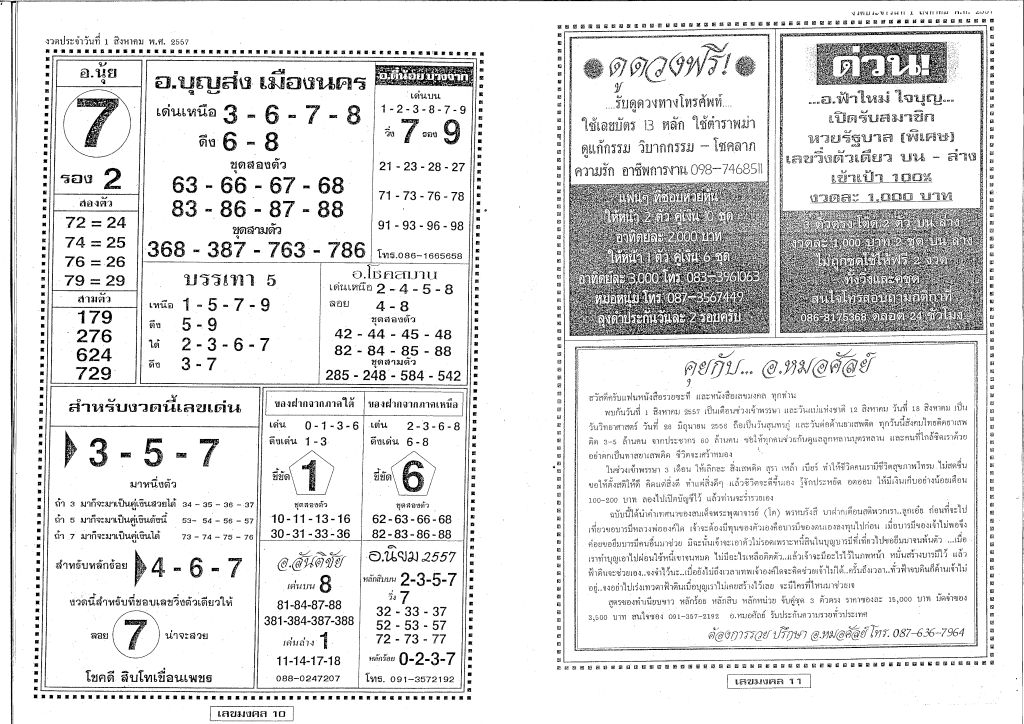 งวดประจำวันที่ 1 สิงหาคม พ.ศ. 2557
อ.นุ้ย
7
รอง 2
สองตัว
72 = 24
74 = 25
76 = 26
79 = 29
สามตัว
179
276
624
729
อ.บุญส่ง เมืองนคร
เด่นเหนือ 3 - 6 - 7 - 8
ดึง 6 - 8
ชุดสองตัว
63 - 66 - 67 - 68
83 - 86 - 87 - 88
ชุดสามตัว
368 - 387 - 763 - 786
อ.ตี๋น้อย บางจาก
เด่นบน
1 - 2 - 3 - 8 - 7 - 9
วิ่ง 7 รอง 9
21 - 23 - 28 - 27
71 - 73 - 76 - 78
91 - 93 - 96 - 98
โทร.086-1665658
บรรเทา 5
เหนือ 1 - 5 - 7 - 9
ดึง 5 - 9
ใต้ 2 - 3 - 6 - 7
ดึง 3 - 7
อ.โชคสมาน
เด่นเหนือ 2 - 4 - 5 - 8
ลอย 4 - 8
ชุดสองตัว
42 - 44 - 45 - 48
82 - 84 - 85 - 88
ชุดสามตัว
285 - 248 - 584 - 542
สำหรับงวดนี้เลขเด่น
3 - 5 - 7
มาหนึ่งตัว
ถ้า 3 มาก็จะมาเป็นคู่เงินสวยได้ 34 - 35 - 36 - 37
ถ้า 5 มาก็จะมาเป็นคู่เงินดังนี้ 53- 54 - 56 - 57
ถ้า 7 มาก็จะมาเป็นคู่เงินได้ 73 - 74 - 75 - 76
สำหรับหลักร้อย 4 - 6 - 7
งวดนี้สำหรับที่ชอบเลขวิ่งตัวเดียวให้
ลอย 7 น่าจะสวย
โชคดี สิบโทเขื่อนเพชร
ของฝากจากภาคใต้
เด่น 0 - 1 - 3 - 6
ดึงเด่น 1 - 3
ชี้ขัด
1
ชุดสองตัว
10 - 11 - 13 - 16
30 - 31 - 33 - 36
ของฝากจากภาคเหนือ
เด่น 2 - 3 - 6 - 8
ดึงเด่น 6 - 8
ชี้ขัด
6
ชุดสองตัว
62 - 63 - 66 - 68
82 - 83 - 86 - 88
อ.สันติชัย
เด่นบน 8
81-84-87-88
381-384-387-388
เด่นล่าง 1
11-14-17-18
088-0247207
อ.นิยม 2557
หลักสิบบน 2-3-5-7
วิ่ง 7
32 - 33 - 37
52 - 53 - 57
72 - 73 - 77
หลักร้อย 0-2-3-7
โทร. 091-3572192
เลขมงคล 10
ดูดวงฟรี!
....รับดูดวงทางโทรศัพท์....
ใช้เลขบัตร 13 หลัก ใช้ตำราพม่า
ดูแก้กรรม วิบากกรรม – โชคลาภ
ความรัก อาชีพการงาน 098-7468511
แฟนๆ ที่ชอบหวยหุ้น
ให้หน้า 2 ตัว คู่เงิน 10 ชุด
อาทิตย์ละ 2,000 บาท
ให้หน้า 1 ตัว คู่เงิน 6 ชุด
อาทิตย์ละ 3,000 โทร 083-3961063
หมอหนุ่ม โทร 087-3567449
ลุงดำประกันวันละ 2 รอบครับ
ด่วน!
...อ.ฟ้าใหม่ ใจบุญ...
เปิดรับสมาชิก
หวยรัฐบาล (พิเศษ)
เลขวิ่งตัวเดียว บน - ล่าง
เข้าเป้า 100%
งวดละ 1,000 บาท
งวดละ 1,000 บาท 2 ชุด บน ล่าง
ไม่ถูกชุดใช้ให้ฟรี 2 งวด
ทั้งวิ่งและคู่ชุด
สนใจโทรสอบถามกติกาที่
086-8175368 ตลอด 24 ชั่วโมง
คุยกับ... อ.หมอศัลย์
สวัสดีครับแฟนหนังสือรวยชะที และหนังสือเลขมงคล ทุกท่าน
พบกันวันที่ 1 สิงหาคม 2557 เป็นเดือนช่วงเข้าพรรษา และวันแม่แห่งชาติ 12 สิงหาคม วันที่ 18 สิงหาคม เป็น
วันวิทยาศาสตร์ วันที่ 26 มิถุนายน 2556 ถือเป็นวันสุนทรภู่ และวันต่อต้านยาเสพติด ทุกวันนี้สังคมไทยติดยาเสพ
ติด 3-5 ล้านคน จากประชากร 60 ล้านคน ขอให้ทุกคนช่วยกันดูแลลูกหลานบุตรหลาน และคนที่ใกล้ชิดเราด้วย
อย่าตกเป็นทาสยาเสพติด ชีวิตจะเศร้าหมอง
ในช่วงเข้าพรรษา 3 เดือน ให้เลิกละ สิ่งเสพติด สุรา เหล้า เบียร์ ทำให้ชีวิตคนเรามีชีวิตสุขภาพโทรม ไม่สดชื่น
ขอให้ตั้งสติให้ดี คิดแต่สิ่งดี ทำแต่สิ่งดีๆ แล้วชีวิตจะดีขึ้นเอง รู้จักประหยัด อดออม ให้มีเงินเก็บอย่างน้อยเดือน
100-200 บาท ลองไปเปิดบัญชีไว้ แล้วท่านจะร่ำรวยเอง
ฉบับนี้ได้นำคำเทศนาของสมเด็จพระพุฒาจารย์ (โต) พรหมรังสี มาฝากเตือนสติพวกเรา...ลูกเอ๋ย ก่อนที่จะไป
เที่ยวขอบารมีหลวงพ่อองค์ใด เจ้าจะต้องมีทุนของตัวเองคือบารมีของตนลงทุนไปก่อน เมื่อบารมีของเจ้าไม่พอจึง
ค่อยขอยืมบารมีคนอื่นมาช่วย มิฉะนั้นเจ้าจะเอาตัวไม่รอดเพราะหนี้สินในบุญบารมีที่เที่ยวไปขอยืมมาจนพ้นตัว ...เมื่อ
เราทำบุญเอาไปผ่อนใช้หนี้เขาจนหมด ไม่มีอะไรเหลือติดตัว...แล้วเจ้าจะมีอะไรไว้ในภพหน้า หมั่นสร้างบารมีไว้ แล้ว
ฟ้าดินจะช่วยเอง...จงจำไว้นะ...เมื่อยังไม่ถึงเวลาเทพเจ้าองค์ใดจะคิดช่วยเจ้าไม่ได้...ครั้นถึงเวลา...ทั่วฟ้าจบดินก็ต้านเจ้าไม่
อยู่...จงอย่าไปเร่งเทวดาฟ้าดินเมื่อบุญเราไม่เคยสร้างไว้เลย จะมีใครที่ไหนมาช่วยเจ้า
3,500 บาท สนใจจอง 091-357-2192 อ.หมอศัลย์ รับประกันความรวยทั่วประเทศ
ต้องการรวย ปรึกษา อ.หมอศัลย์ โทร. 087-636-7964
เลขมงคล 11